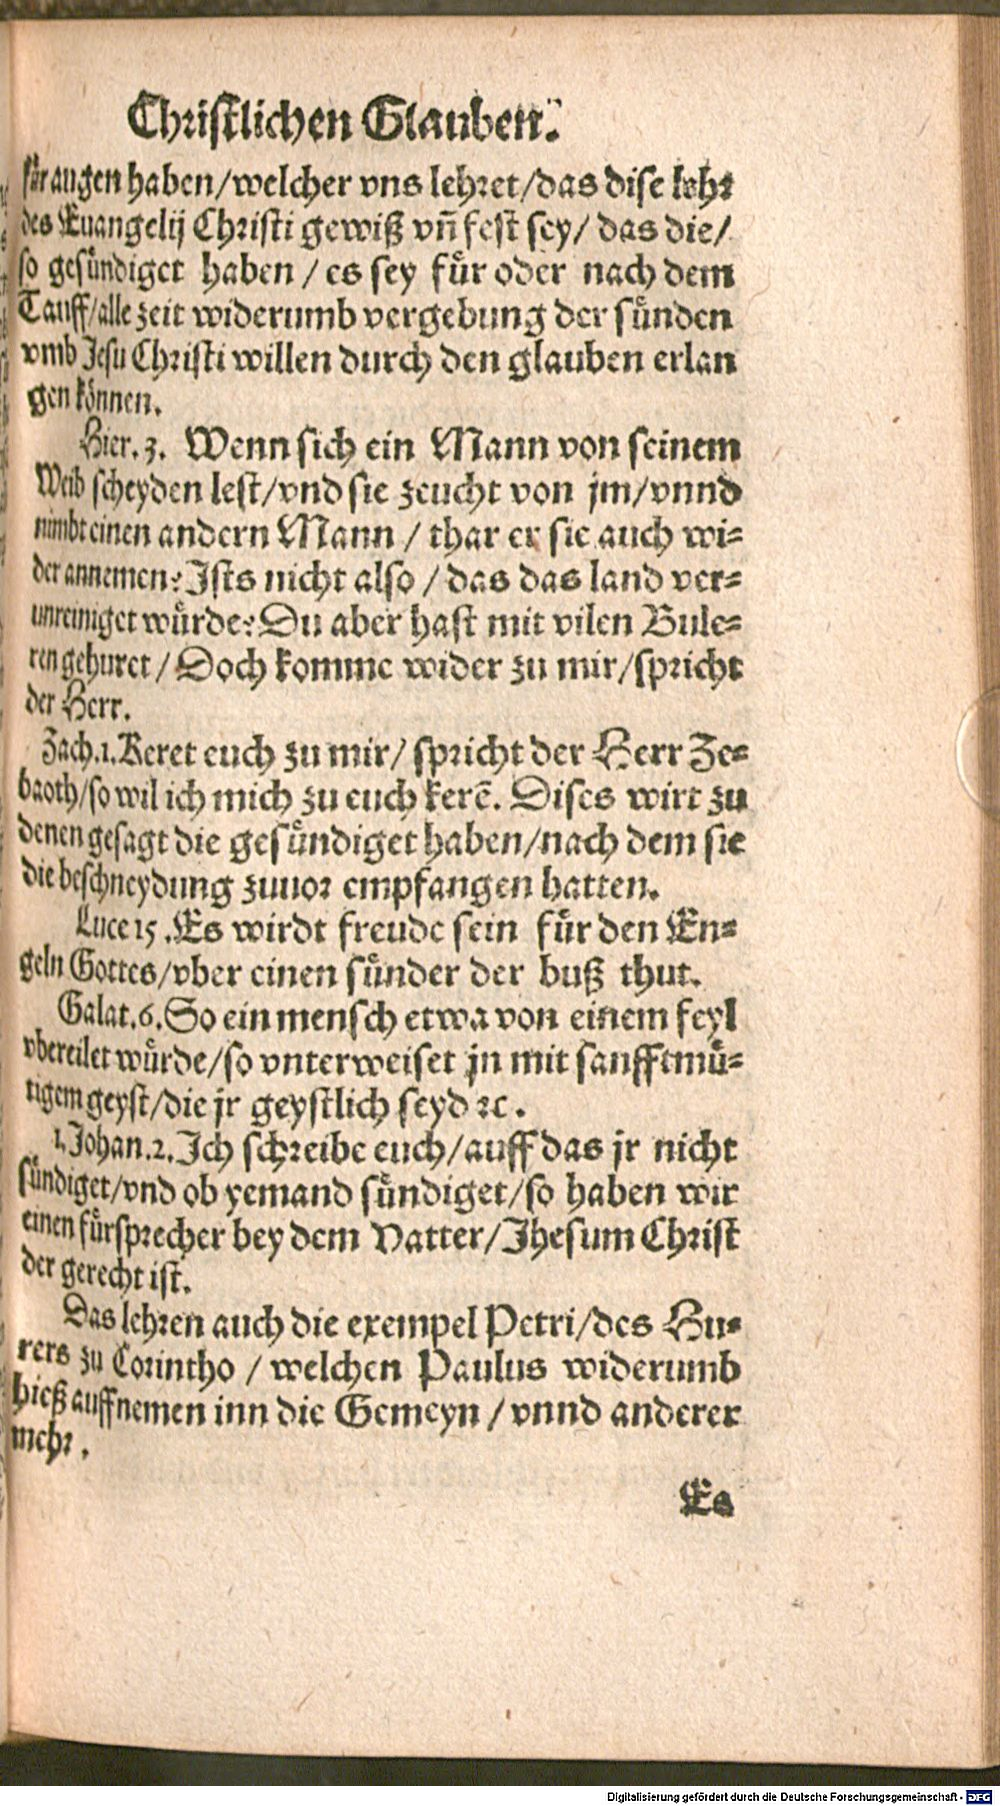 Christlichen Glauben.
für augen haben/welcher vns lehret/das dise lehr
des Euangelij Christi gewiß vñ fest sey/ das die/
so gesündiget haben / es sey für oder nach dem
Tauff/alle zeit widerumb vergebung der sünden
vmb Jesu Christi willen durch den glauben erlan
gen können.
Hier. 3. Wenn sich ein Mann von seinem
Weib scheyden lest/vnd sie zeucht von jm/vnnd
nimbt einen andern Mann / thar er sie auch wi-
der annemen? Ists nicht also / das das land ver-
unreiniget würde? Du aber hast mit vilen Bule-
ren gehuret / Doch komme wider zu mir/spricht
der Herr.
Zach.1. Keret euch zu mir/ spricht der Herr Ze-
baoth/so wil ich mich zu euch kerē. Dises wirt zu
denen gesagt die gesündiget haben/nach dem sie
die beschneydung zuuor empfangen hatten.
Luce 15. Es wirdt freude sein für den En-
geln Gottes/vber einen sünder der buß thut.
Galat.6. So ein mensch etwa von einem feyl
vbereilet würde/so vnterweiset jn mit sanfftmü-
tigem geyst/die jr geystlich seyd ꝛc.
1. Johan.2. Ich schreibe euch/auff das jr nicht
sündiget/vnd ob yemand sündiget/so haben wir
einen fürsprecher bey dem Vatter/Jhesum Christ
der gerecht ist.
Das lehren auch die exempel Petri/des Hu-
rers zu Corintho / welchen Paulus widerumb
hieß auffnemen inn die Gemeyn / vnnd anderer
mehr.
Es
Digitalisierung gefördert durch die Deutsche Forschungsgemeinschaft - DFG